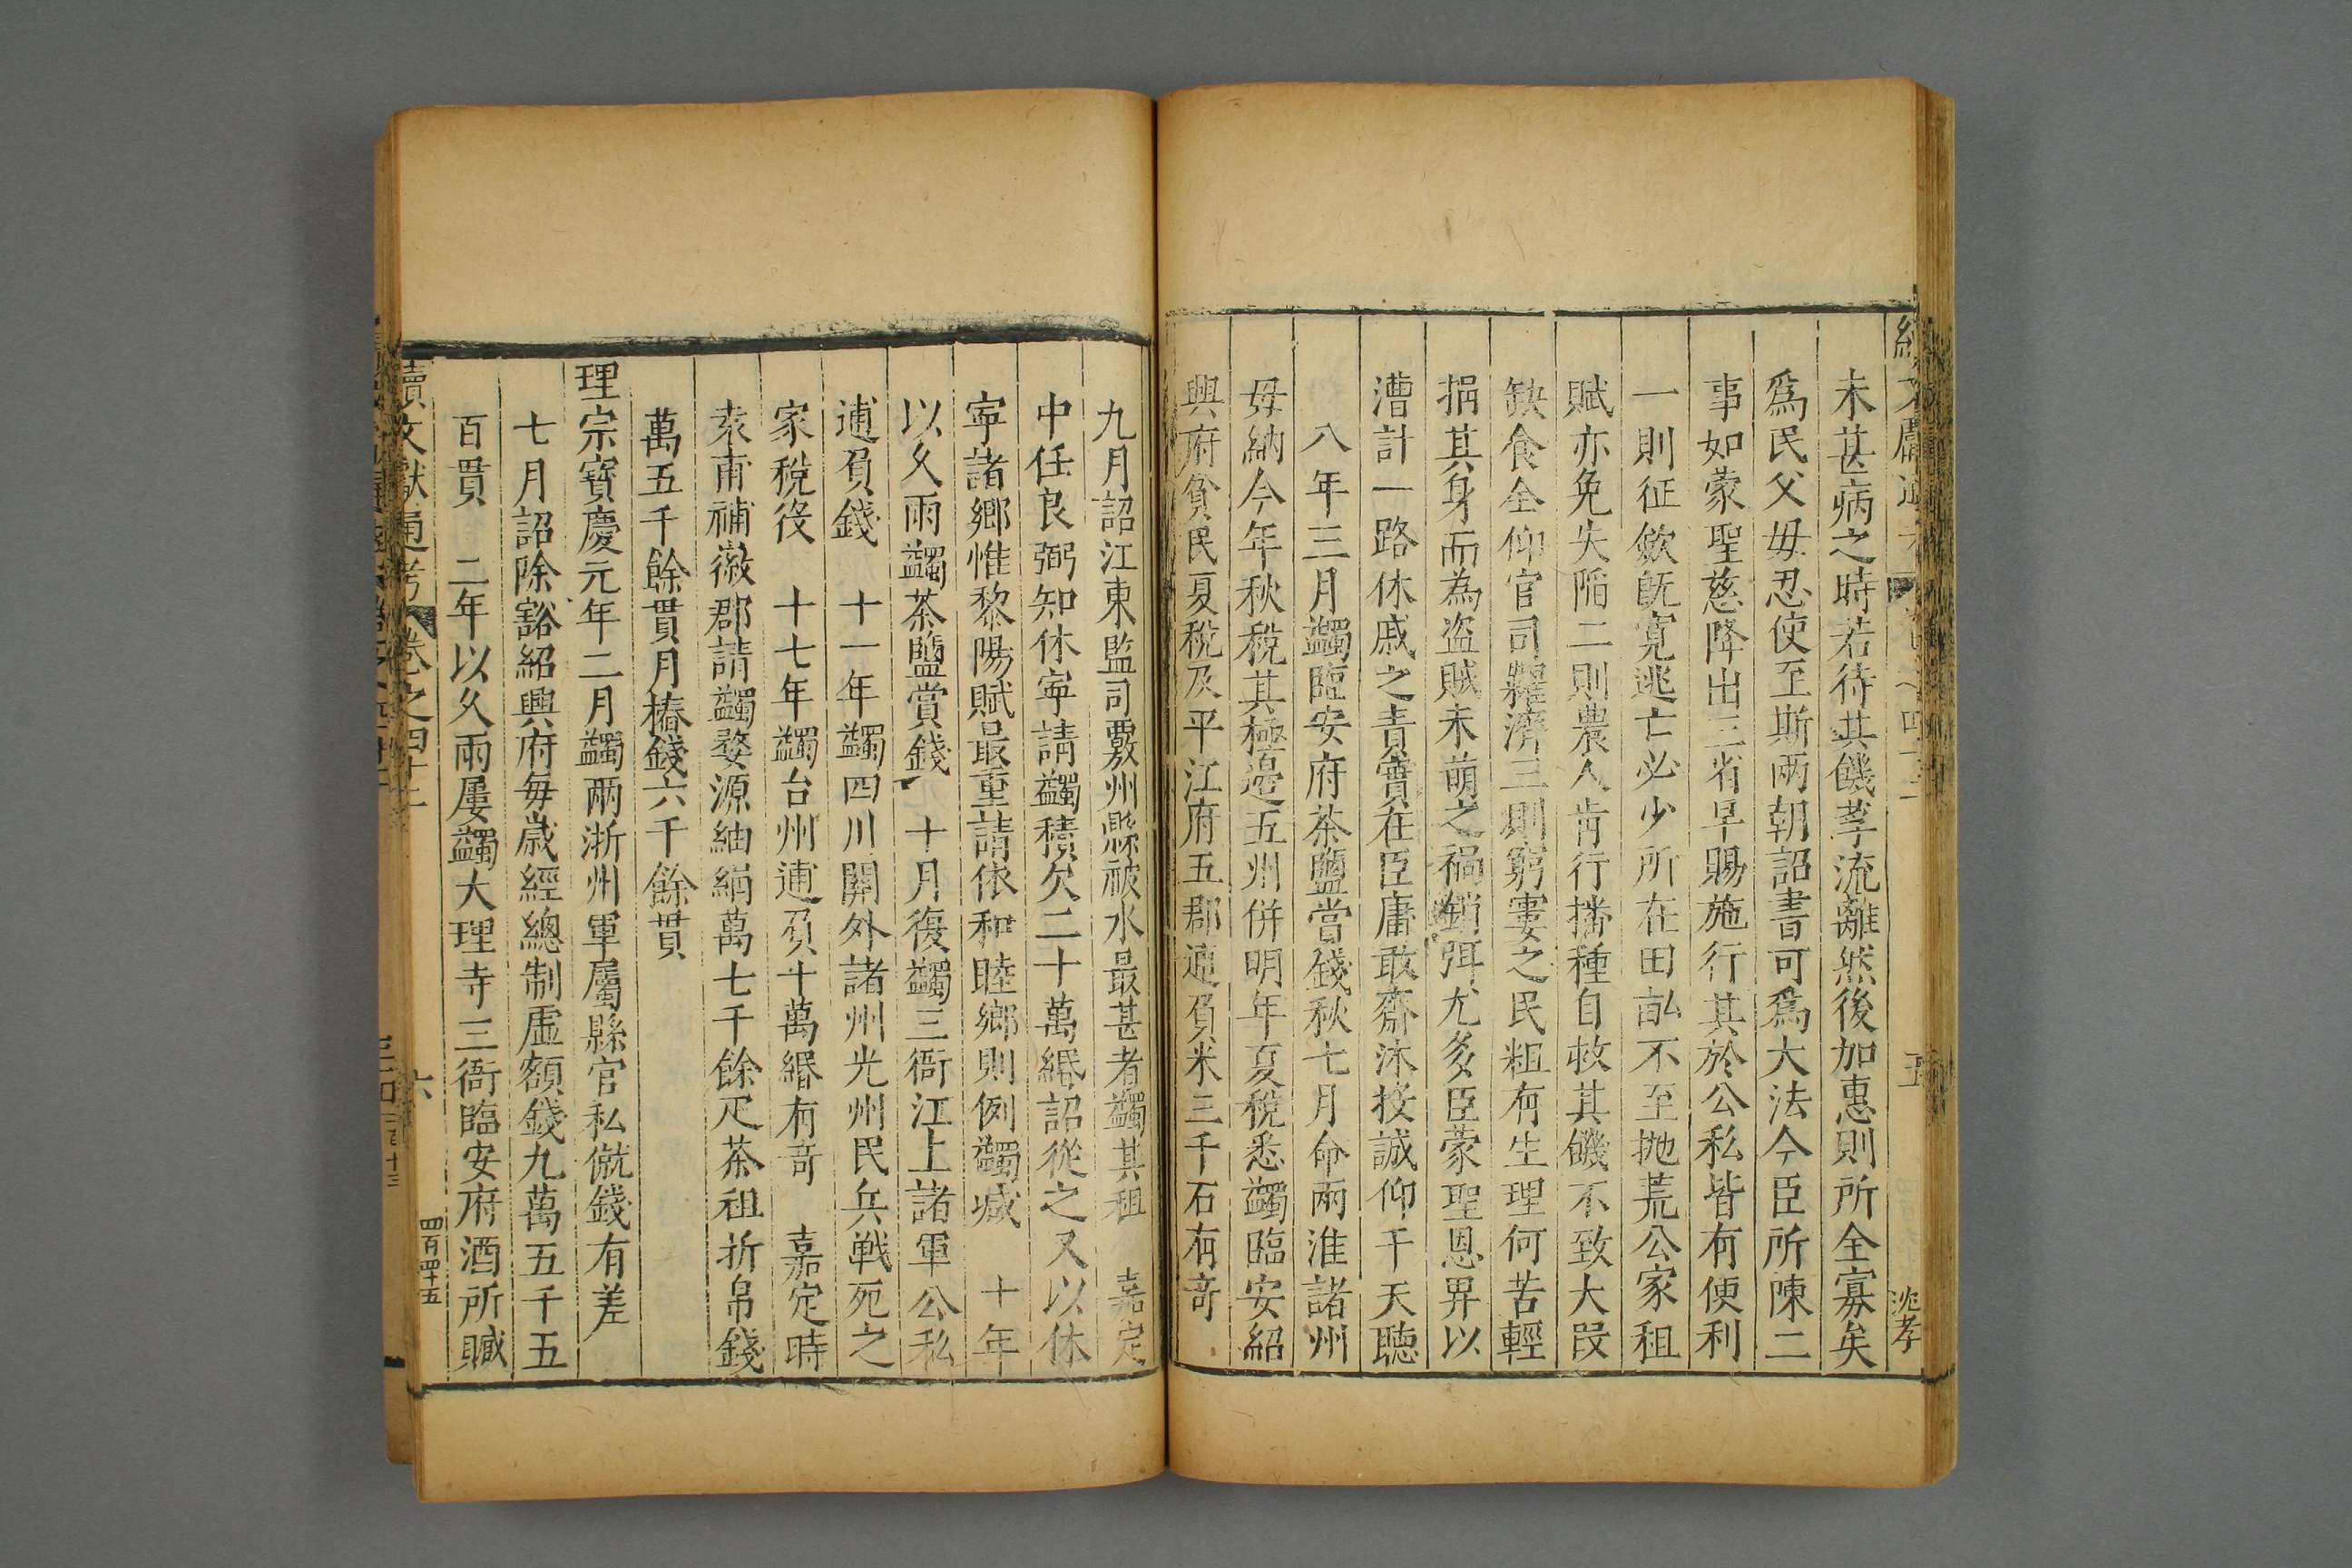 未甚病之時若待其饑莩流離然後加惠則所全寡矣
爲民父毋忍使至斯兩朝詔書可爲大法今臣所陳二
事如蒙聖慈降出三省早賜施行其於公私皆有便利
一則征歛旣寛逃亡必少所在田畆不至抛荒公家租
賦亦免失陷二則農人肯行播種自救其磯不致大段
缺食全仰官司糴濟三則窮窶之民粗有生理何苦輕
捐其身而為盗賊未萌之禍銷弭尤多臣蒙聖恩畀以
漕計一路休戚之責實在臣庸敢齋沐投誠仰干天聽
八年三月蠲臨安府茶鹽賞錢秋七月命兩淮諸州
毋納今年秋稅其極邉五州併明年夏稅悉蠲臨安紹
興府貧民夏稅及平江府五郡逋負米三千石有竒
九月詔江東監司覈州縣被水最甚者蠲其租 嘉定
中任良弼知休寧請蠲積欠二十萬緡詔從之又以休
寧諸鄉惟黎陽賦最重請依和睦鄉則例蠲减 十年
以久雨蠲茶鹽賞錢 十月復蠲三衙江上諸軍公私
逋負錢 十一年蠲四川關外諸州光州民兵戰死之
家稅役 十七年蠲台州逋負十萬緡有竒 嘉定時
袁甫補徽郡請蠲婺源紬絹萬七千餘疋茶租折帛錢
萬五千餘貫月樁錢六千餘貫
理宗寶慶元年二月蠲兩浙州軍屬縣官私僦錢有差
七月詔除豁紹興府每歲經總制虛額錢九萬五千五
百貫 二年以久雨屢蠲大理寺三衙臨安府酒所贓
續文獻通考 卷之四十二
六
四百四十五